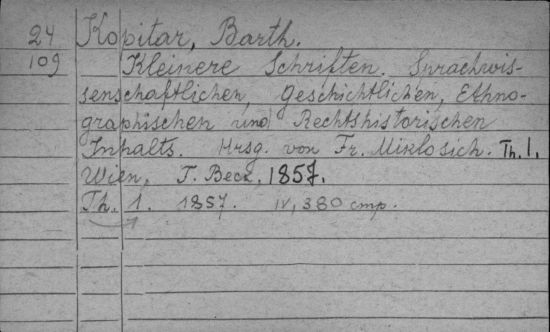 24 Kopitar, Barth.
109 Kleinere Schriften. Sprachwis-
senschaftlichen, geschichtlichen, Ethno-
graphischen und Rechtshistorischen
Inhalts. Hrsg. von Fr. Miklosich. Th. 1.
Wien, F. Beck, 1857.
Th. 1. 1857. IV, 380 стр.